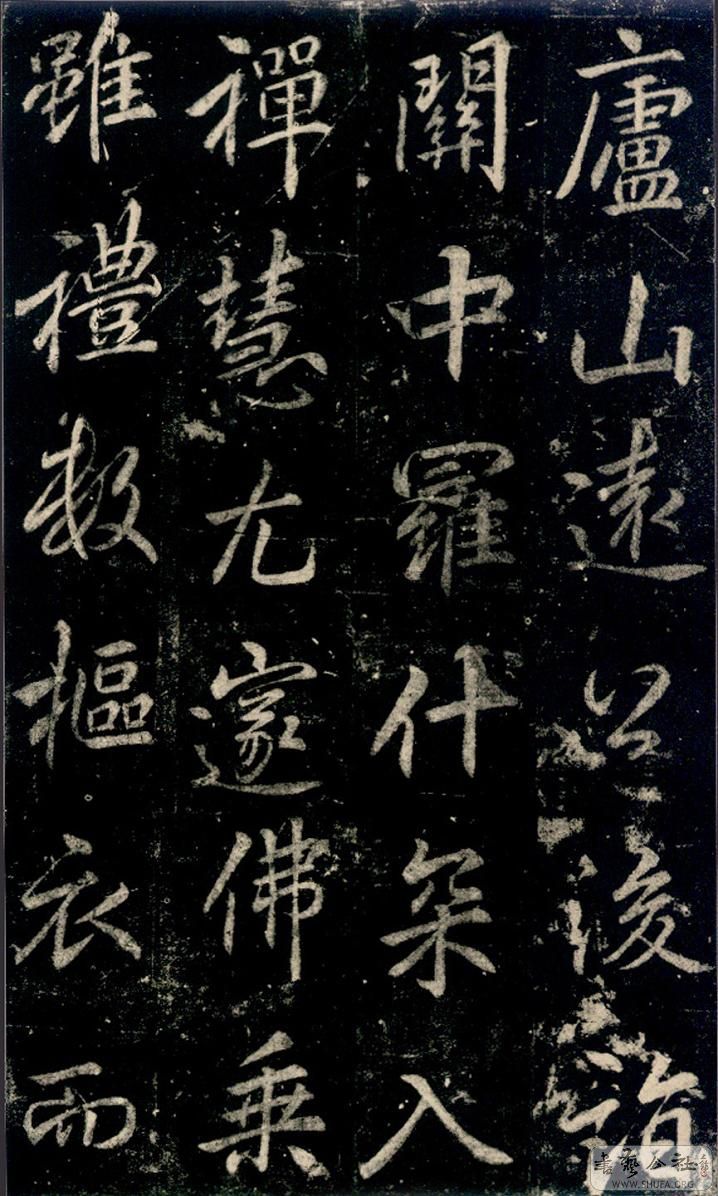 廬山遠公後詣
關中羅什罙入
禪慧尤邃佛乘
雖禮數摳衣而
書藝公社
WWW.SHUFA.ORG